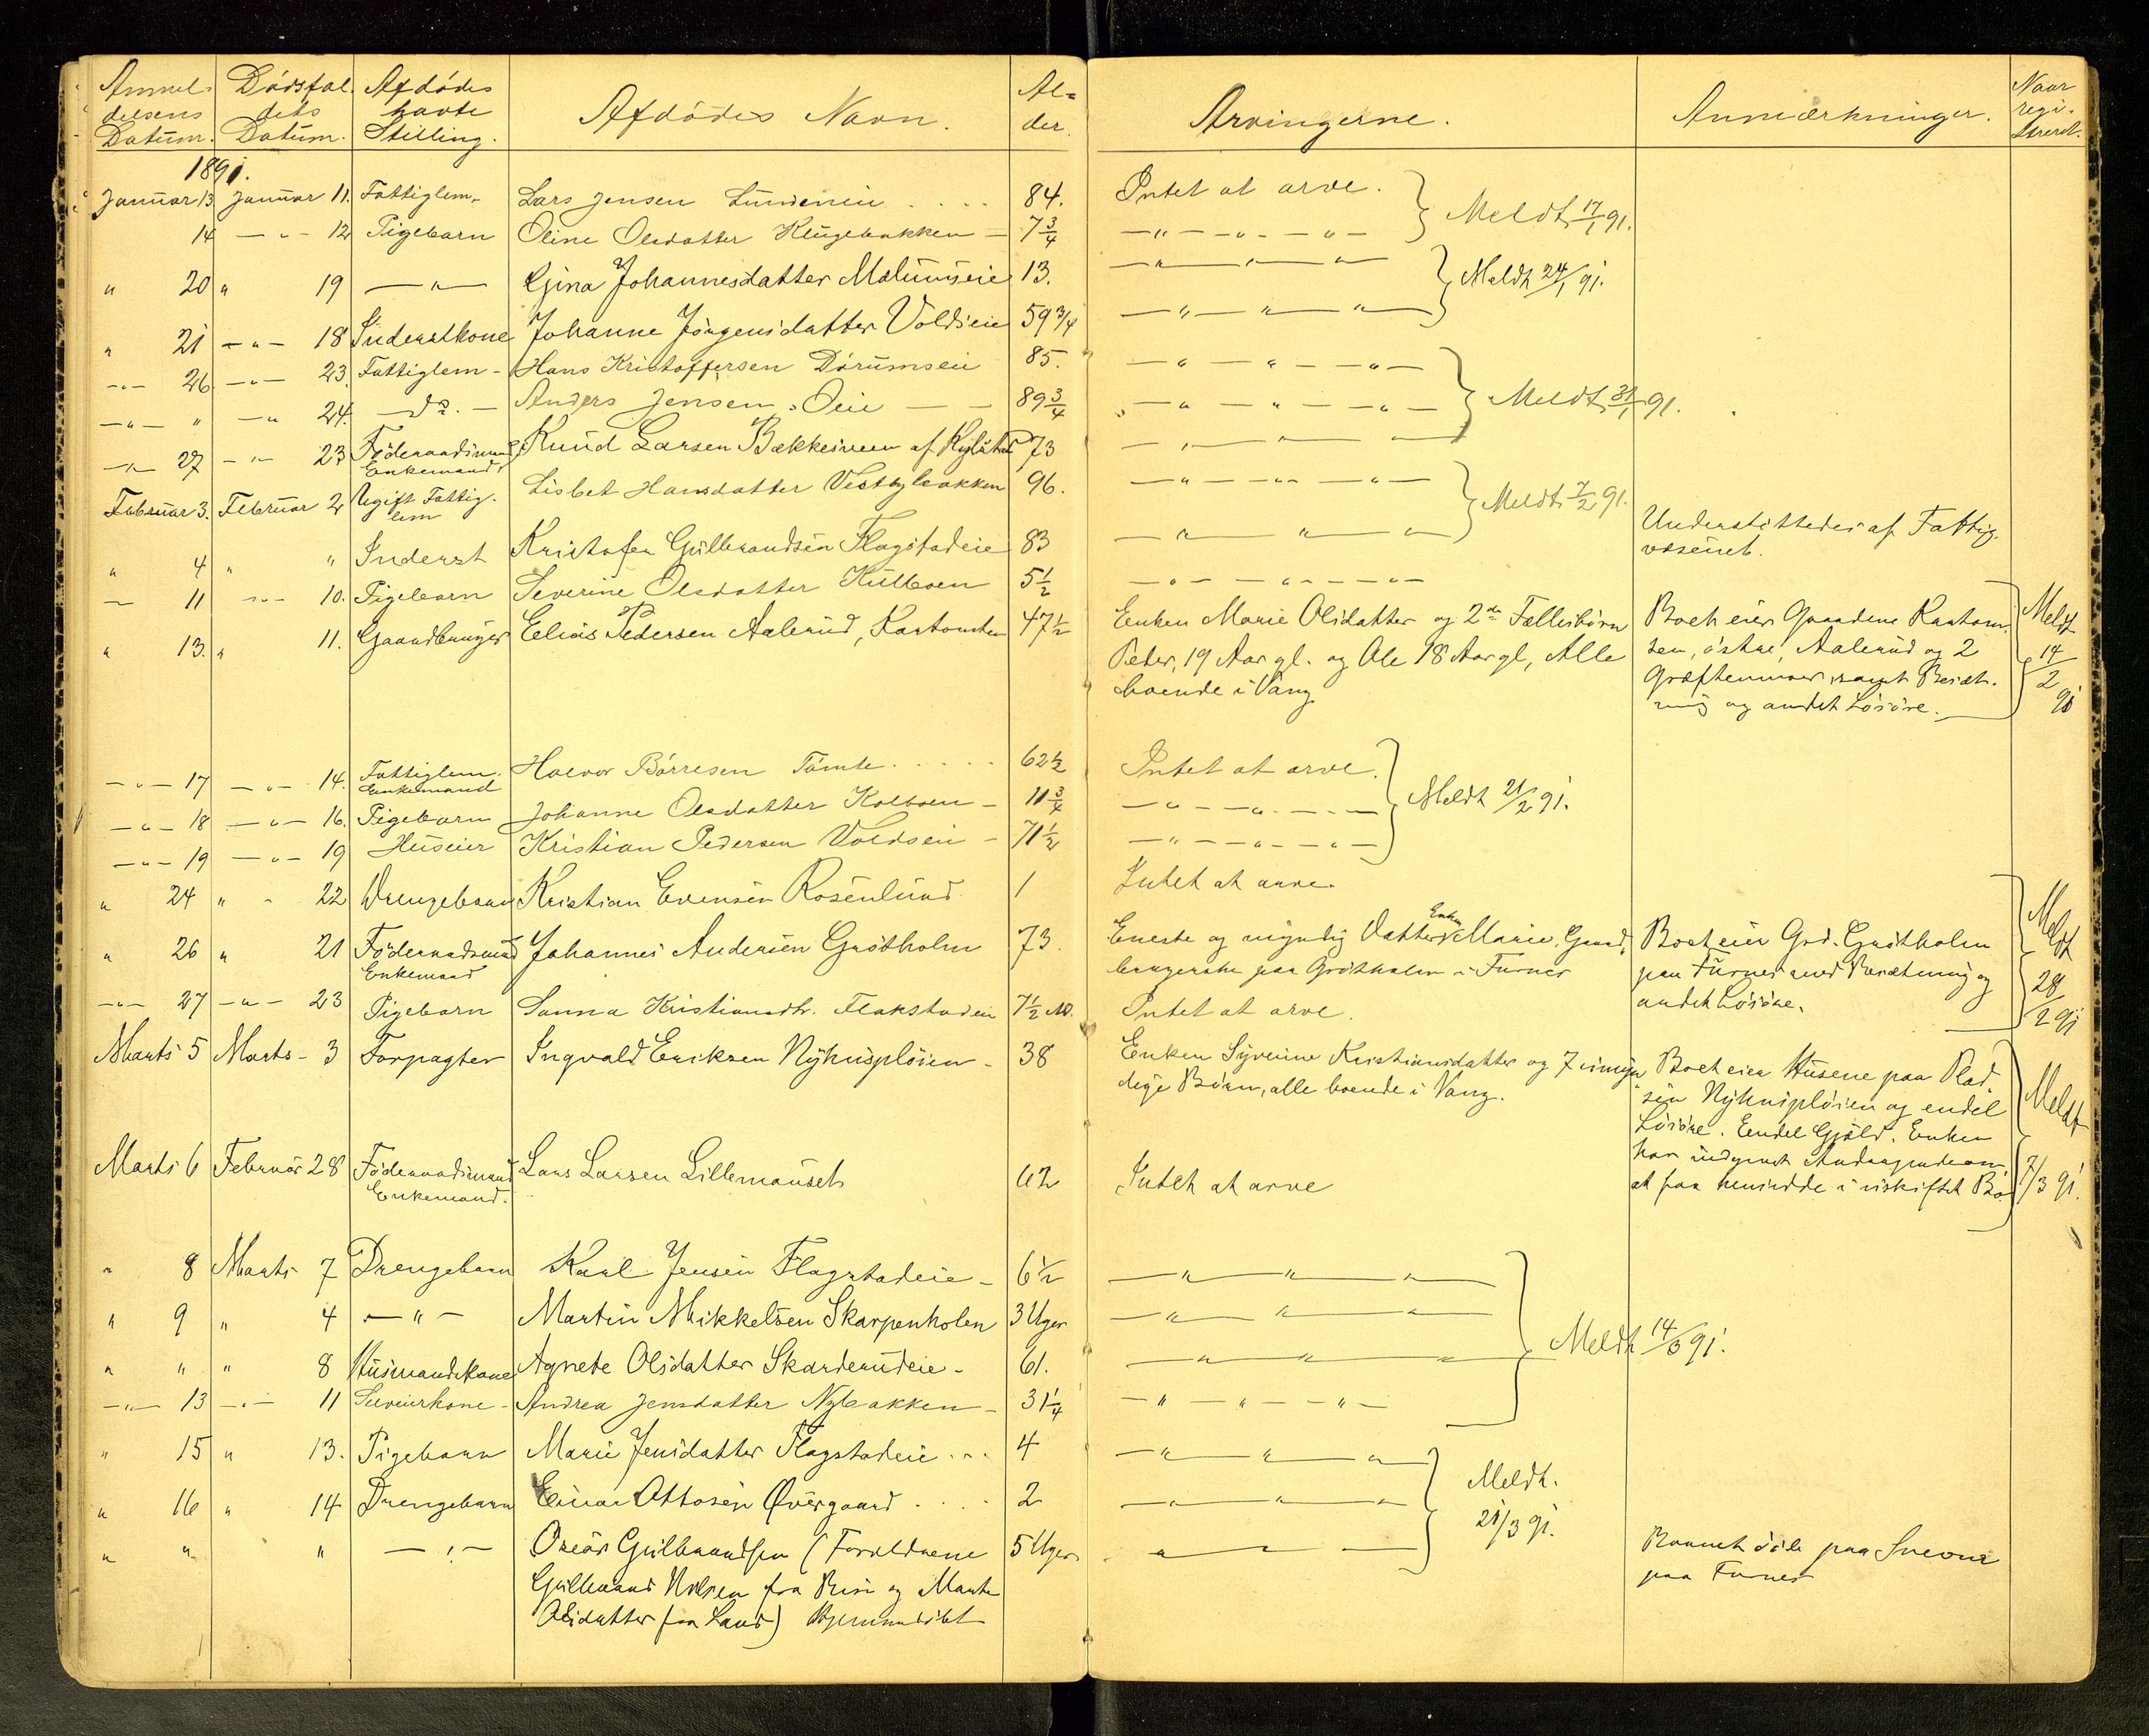 Anmel- Dödsfal- Afdödes Afdödes Navn. Al- Arvingerne. Anmærkninger. Naar
delsens dets havte der. regi-
Datum. Datum. Stilling. streret.
1891.
Januar 13 Januar 11. Fattiglem. Lars Jensen Lundeneie .... 84. Intet at arve. Meldt 17/1 91.
14 — " — 12 Pigebarn Oline Olsdatter Klugebakken — 7 3/4 — " — " — " —
" 20 " 19 — " — Gina Johannesdatter Malumseie 13. — " — " — " — Meldt 24/1 91.
" 21 — " — 18 Inderstkone Johanne Jörgensdatter Voldseie 59 3/4 — " — " — " —
— " — 26 — " — 23. Fattiglem — Hans Kristoffersen Dörumseie 85. — " — " — " — Meldt 31/1 91.
— " — " — " 24. — do. — Anders Jensen Oeie — — 89 3/4 — " — " — " —
— " — 27 — " — 23 Föderaadsmand, Knud Larsen Bækkesveen af 73 — " — " — " —
Enkemand
Februar 3. Februar 2 Ugift Fattig- Lisbet Hansdatter Vestbybakken 96. — " — " — " — Meldt 7/2 91.
lem
" 4 " " Inderst Kristofer Gulbrandsen Flagstadeie 83 — " — " — " — Understöttedes af Fattig-
væsenet.
— 11 — " — 10. Pigebarn Severine Olsdatter Kulboen 5 1/2 — " — " — " —
" 13. " 11. Gaardbruger Elias Pedersen Aalerud, 47 1/2 Enken Marie Olsdatter og 2de Fællesbörn Boet eier Gaardene Meldt
Peder, 19 Aar gl. og Ole 18 Aar gl, Alle östre, Aalerud og 2 14/2 91
boende i Vang samt Besæt-
ning og andet Lösöre.
— " — 17 — " — 14. Fattiglem. Halvor Börresen Tömte ..... 62 1/2 Intet at arve. Meldt 21/2 91.
Enkemand
— " — 18 — " — 16. Pigebarn Johanne Olsdatter Kolboen — 11 3/4 — " — " — " —
— " — 19 — " — 19 Huseier Kristian Pedersen Voldseie — 71 1/2 — " — " — " —
" 24 " " 22 Drengebarn Kristian Evensen Rosenlund 1 Intet at arve.
" 26 " 21 Föderaadsmand Johannes Andersen Grötholm 73. Eneste og myndig Datter Enke Marie, Gaard- Boet eier Grd. Grötholm Meldt
Enkemand brugerske paa Grötholm i Furnes paa Furnes med Besætning og 28/2 91
— " — 27 — " — 23 Pigebarn Sanna Kristiansdtr. Flakstadeie 7 1/2 M. Intet at arve. andet Lösöre.
Marts 5 Marts — 3 Forpagter Ingvald Eriksen Nyhusplöien — 38 Enken Syverine Kristiansdatter og 7 umyn- Boet eier Husene paa Plad-
dige Börn, alle boende i Vang. sen Nyhusplöien og endel Meldt
Lösöre. Eendel Gjæld. Enken
Marts 6 Februar 28 Föderaadsmand Lars Larsen Lillemauset 62 Intet at arve har indgivet Andragende om 7/3 91.
Enkemand. at faa hensidde i uskiftet Bo.
" 8 Marts 7 Drengebarn Karl Jensen Flagstadeie — 6 1/2 — " — " — " —
" 9 " 4 — " — Martin Mikkelsen Skarpenholen 3 Uger — " — " — " — Meldt 14/3 91.
" " " 8 Husmandskone Agnete Olsdatter Skarderudeie — 61. — " — " — " —
— " — 13 — " — 11 Andrea Jensdatter Nybakken — 31 1/4 — " — " — " —
" 15 " 13. Pigebarn Marie Jensdatter Flagstadeie ... 4 — " — " — " — Meldt.
" 16 " 14 Drengebarn Einar Ottosen Övergaard .... 2 — " — " — " — 21/3 91.
" " " — " — Oskar Gulbrandsen (Forældrene 5 Uger — " — " — " — Barnet döde paa
Gulbrand Nilsen fra og Marte paa Furnes
Olsdatter fra Land) Hjemmedöbt